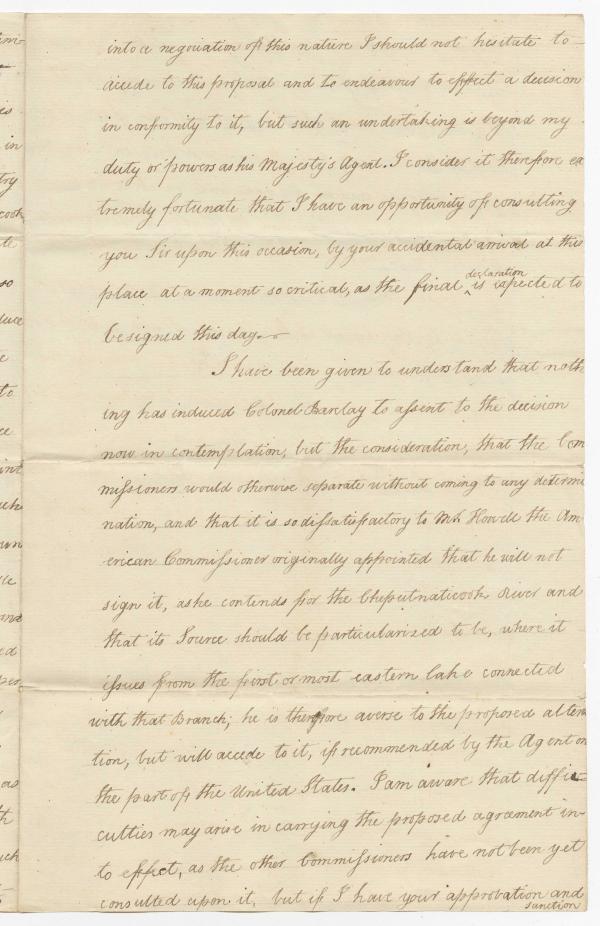 into a negociation of this nature I should not hesitate to
accede to this proposal and to endeavour to effect a decision
in conformity to it, but such an undertaking is beyond my
duty or powers as his Majesty's Agent. I consider it therefore ex
tremely fortunate that I have an opportunity of consulting
you Sir upon this occasion, by your accidental arrival at this
place at a moment so critical, as the final declaration is expected to
be signed this day.
I have been given to understand that noth
ing has induced Colonel Barclay to assent to the decision
now in contemplation, but the consideration, that the Com
missioners would otherwise separate without coming to any determi
nation, and that it is so dissatisfactory to Mr. Howell the Am
erican Commissioner originally appointed that he will not
sign it, as he contends for the Cheputnaticook River and
that its Source should be particularized to be, where it
issues from the first or most eastern lake connected
with that Branch; he is therefore averse to the proposed altera
tion, but will accede to it, if recommended by the Agent on
the part of the United States. I am aware that diffi-
culties may arise in carrying the proposed agreement in-
to effect, as the other Commissioners have not been yet
consulted upon it, but if I have your approbation and
sanction